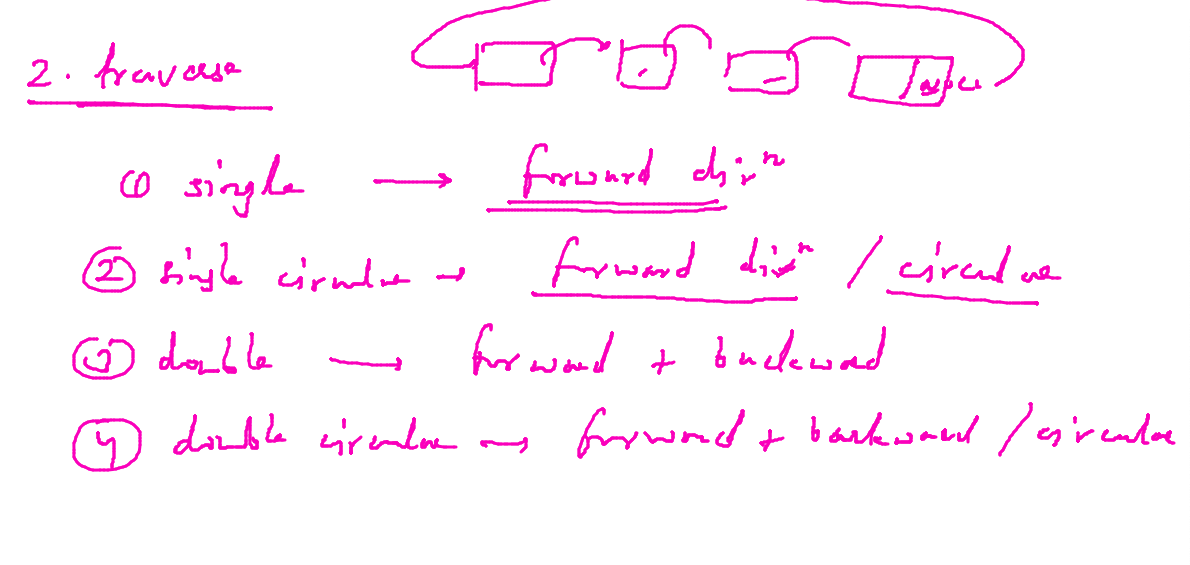 2. traverse
NULL
① single → forward dirⁿ
② single circular → forward dirⁿ / circular
③ double → forward + backward
④ double circular → forward + backward / circular